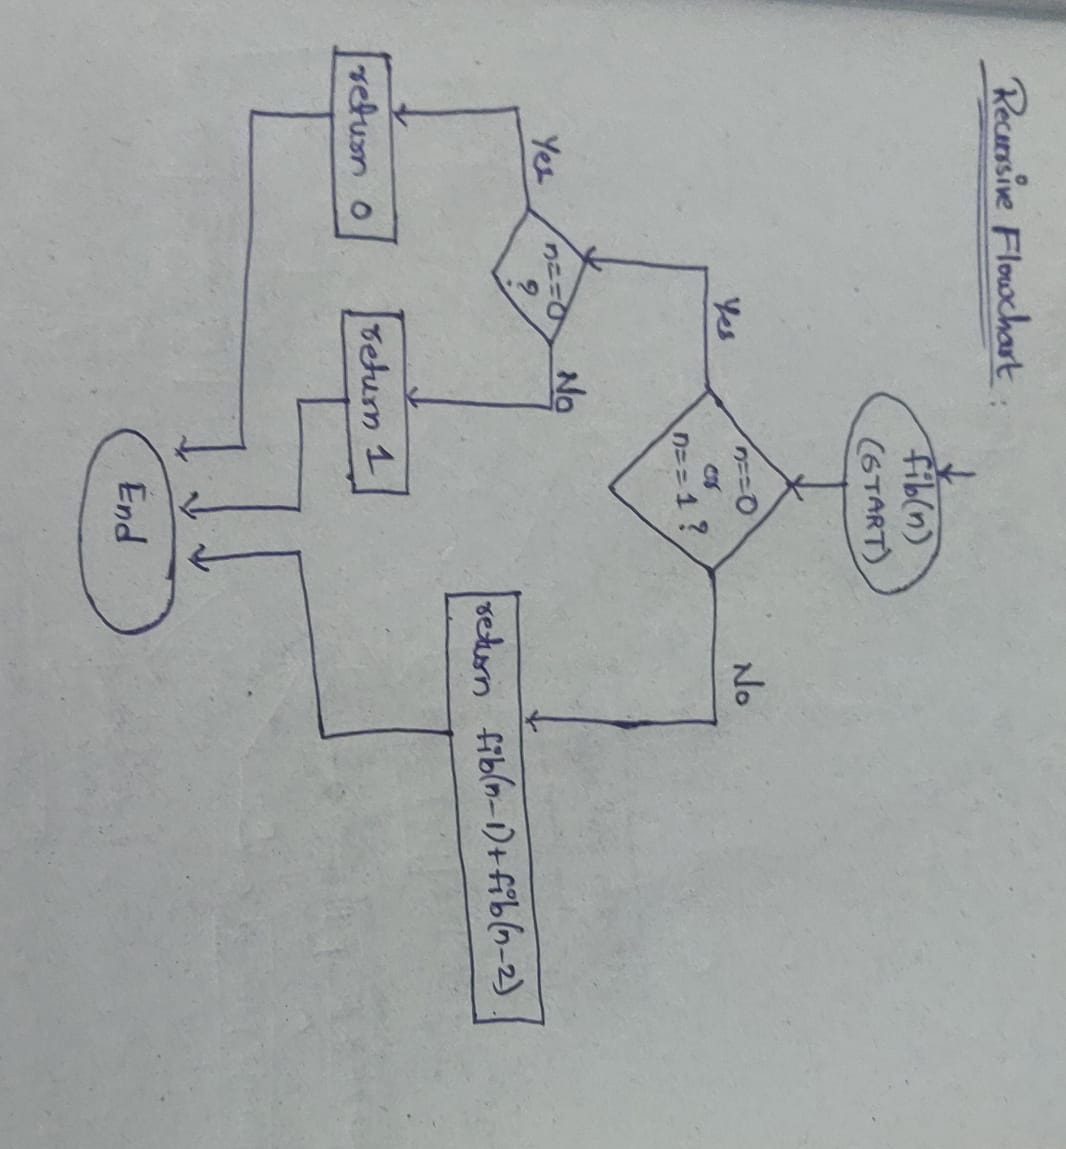 Recursive Flowchart :
fib(n)
(START)
n==0
or
n==1 ?
Yes
No
n==0
?
Yes
No
return 0
return 1
return fib(n-1)+fib(n-2)
End